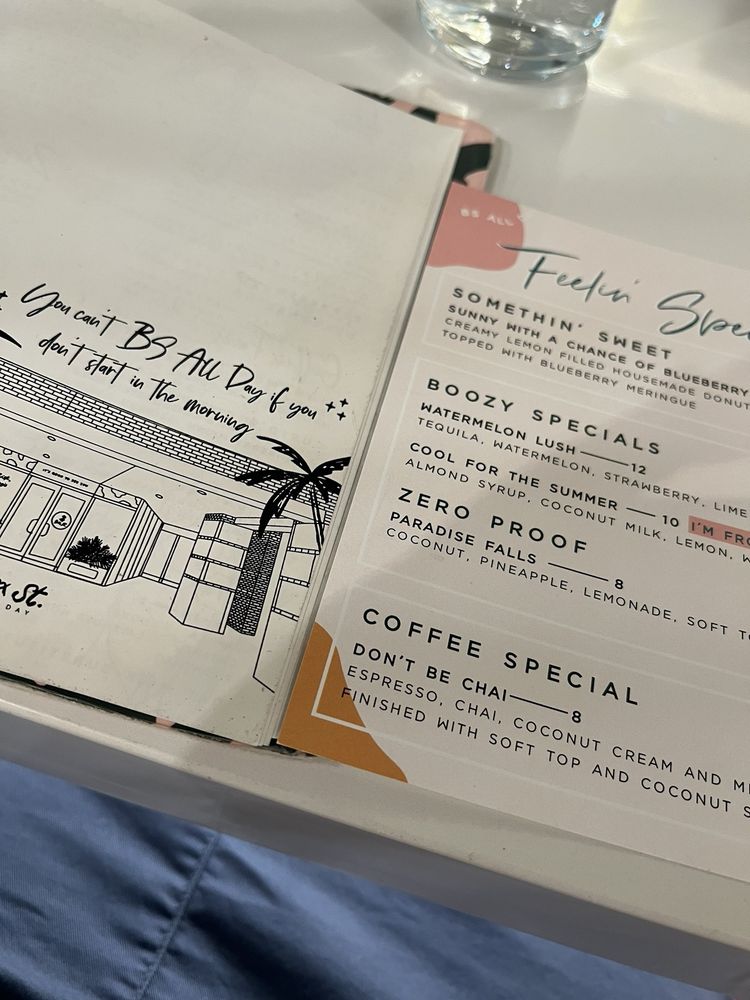 You can't BS All Day if you
don't start in the morning
St.
DAY
BS ALL
Feelin'
SOMETHIN' SWEET
SUNNY WITH A CHANCE OF BLUEBERRY
CREAMY LEMON FILLED HOUSEMADE DONUT
TOPPED WITH BLUEBERRY MERINGUE
BOOZY SPECIALS
WATERMELON LUSH 12
TEQUILA, WATERMELON, STRAWBERRY, LIME
COOL FOR THE SUMMER 10 I'M
ALMOND SYRUP, COCONUT MILK, LEMON,
ZERO PROOF
PARADISE FALLS 8
COCONUT, PINEAPPLE, LEMONADE, SOFT
COFFEE SPECIAL
DON'T BE CHAI 8
ESPRESSO, CHAI, COCONUT CREAM AND
FINISHED WITH SOFT TOP AND COCONUT